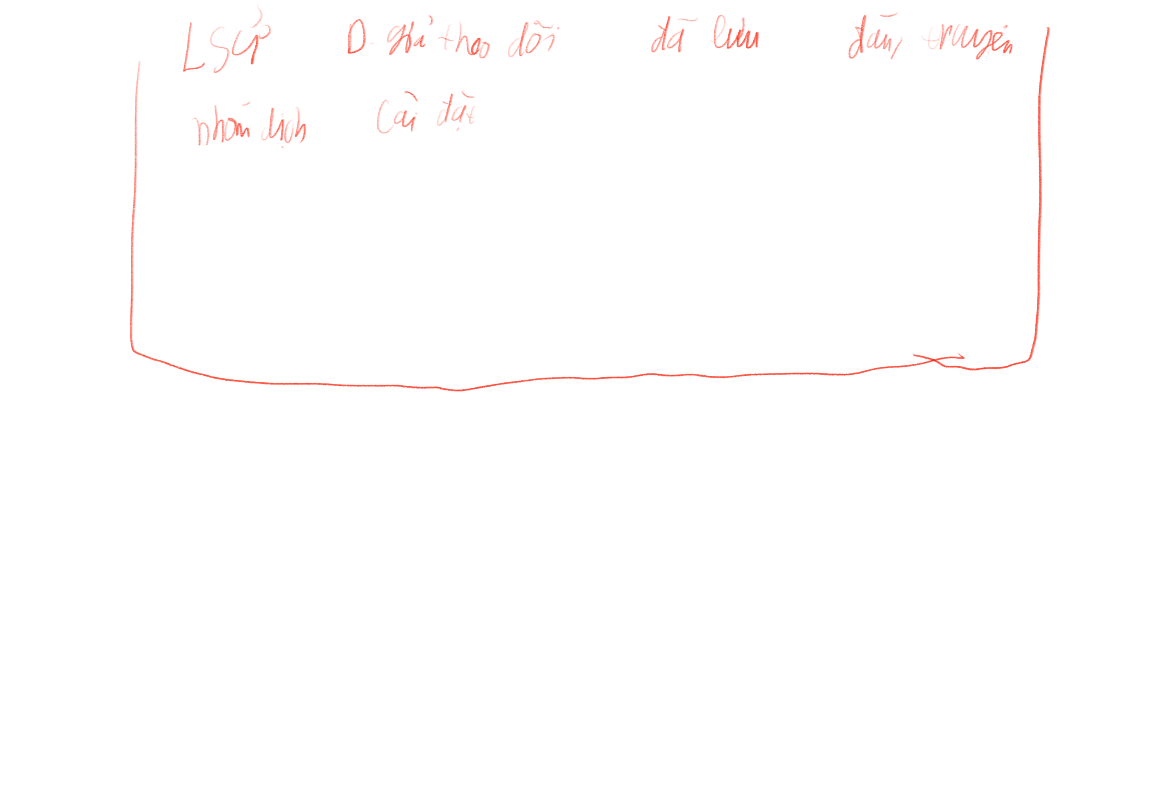 LSử Đ. giả theo dõi đã lưu đăng truyện
nhóm dịch Cài đặt